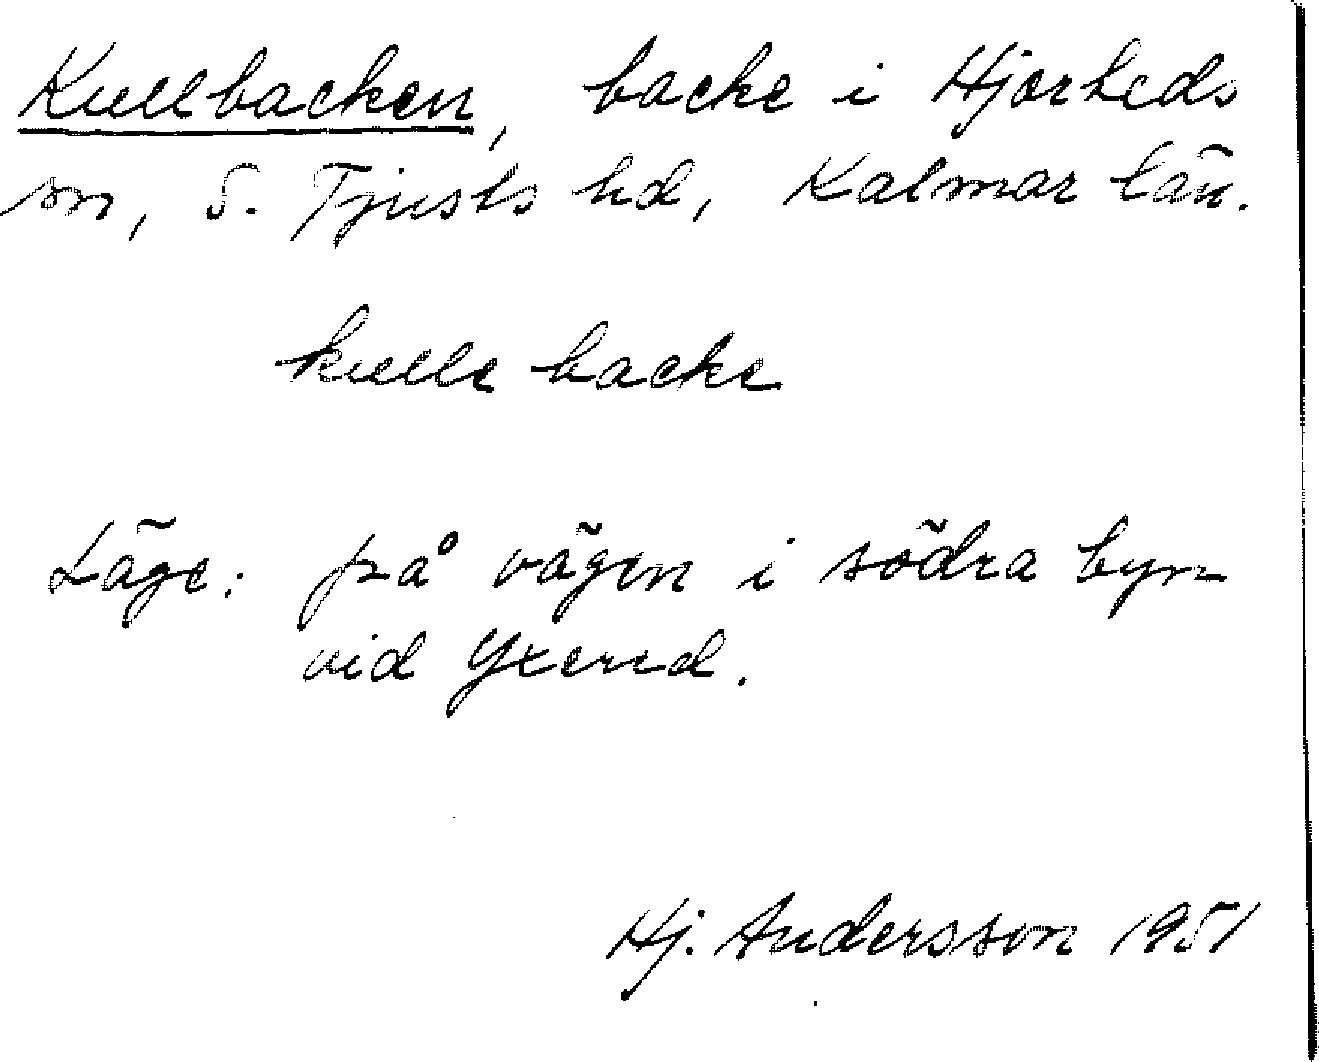 Kullbacken, backe i Hjorteds
sn, S. Tjusts hd, Kalmar län.
kulle backe
Läge: på vägen i södra byn
vid Yxered.
Hj. Andersson 1951